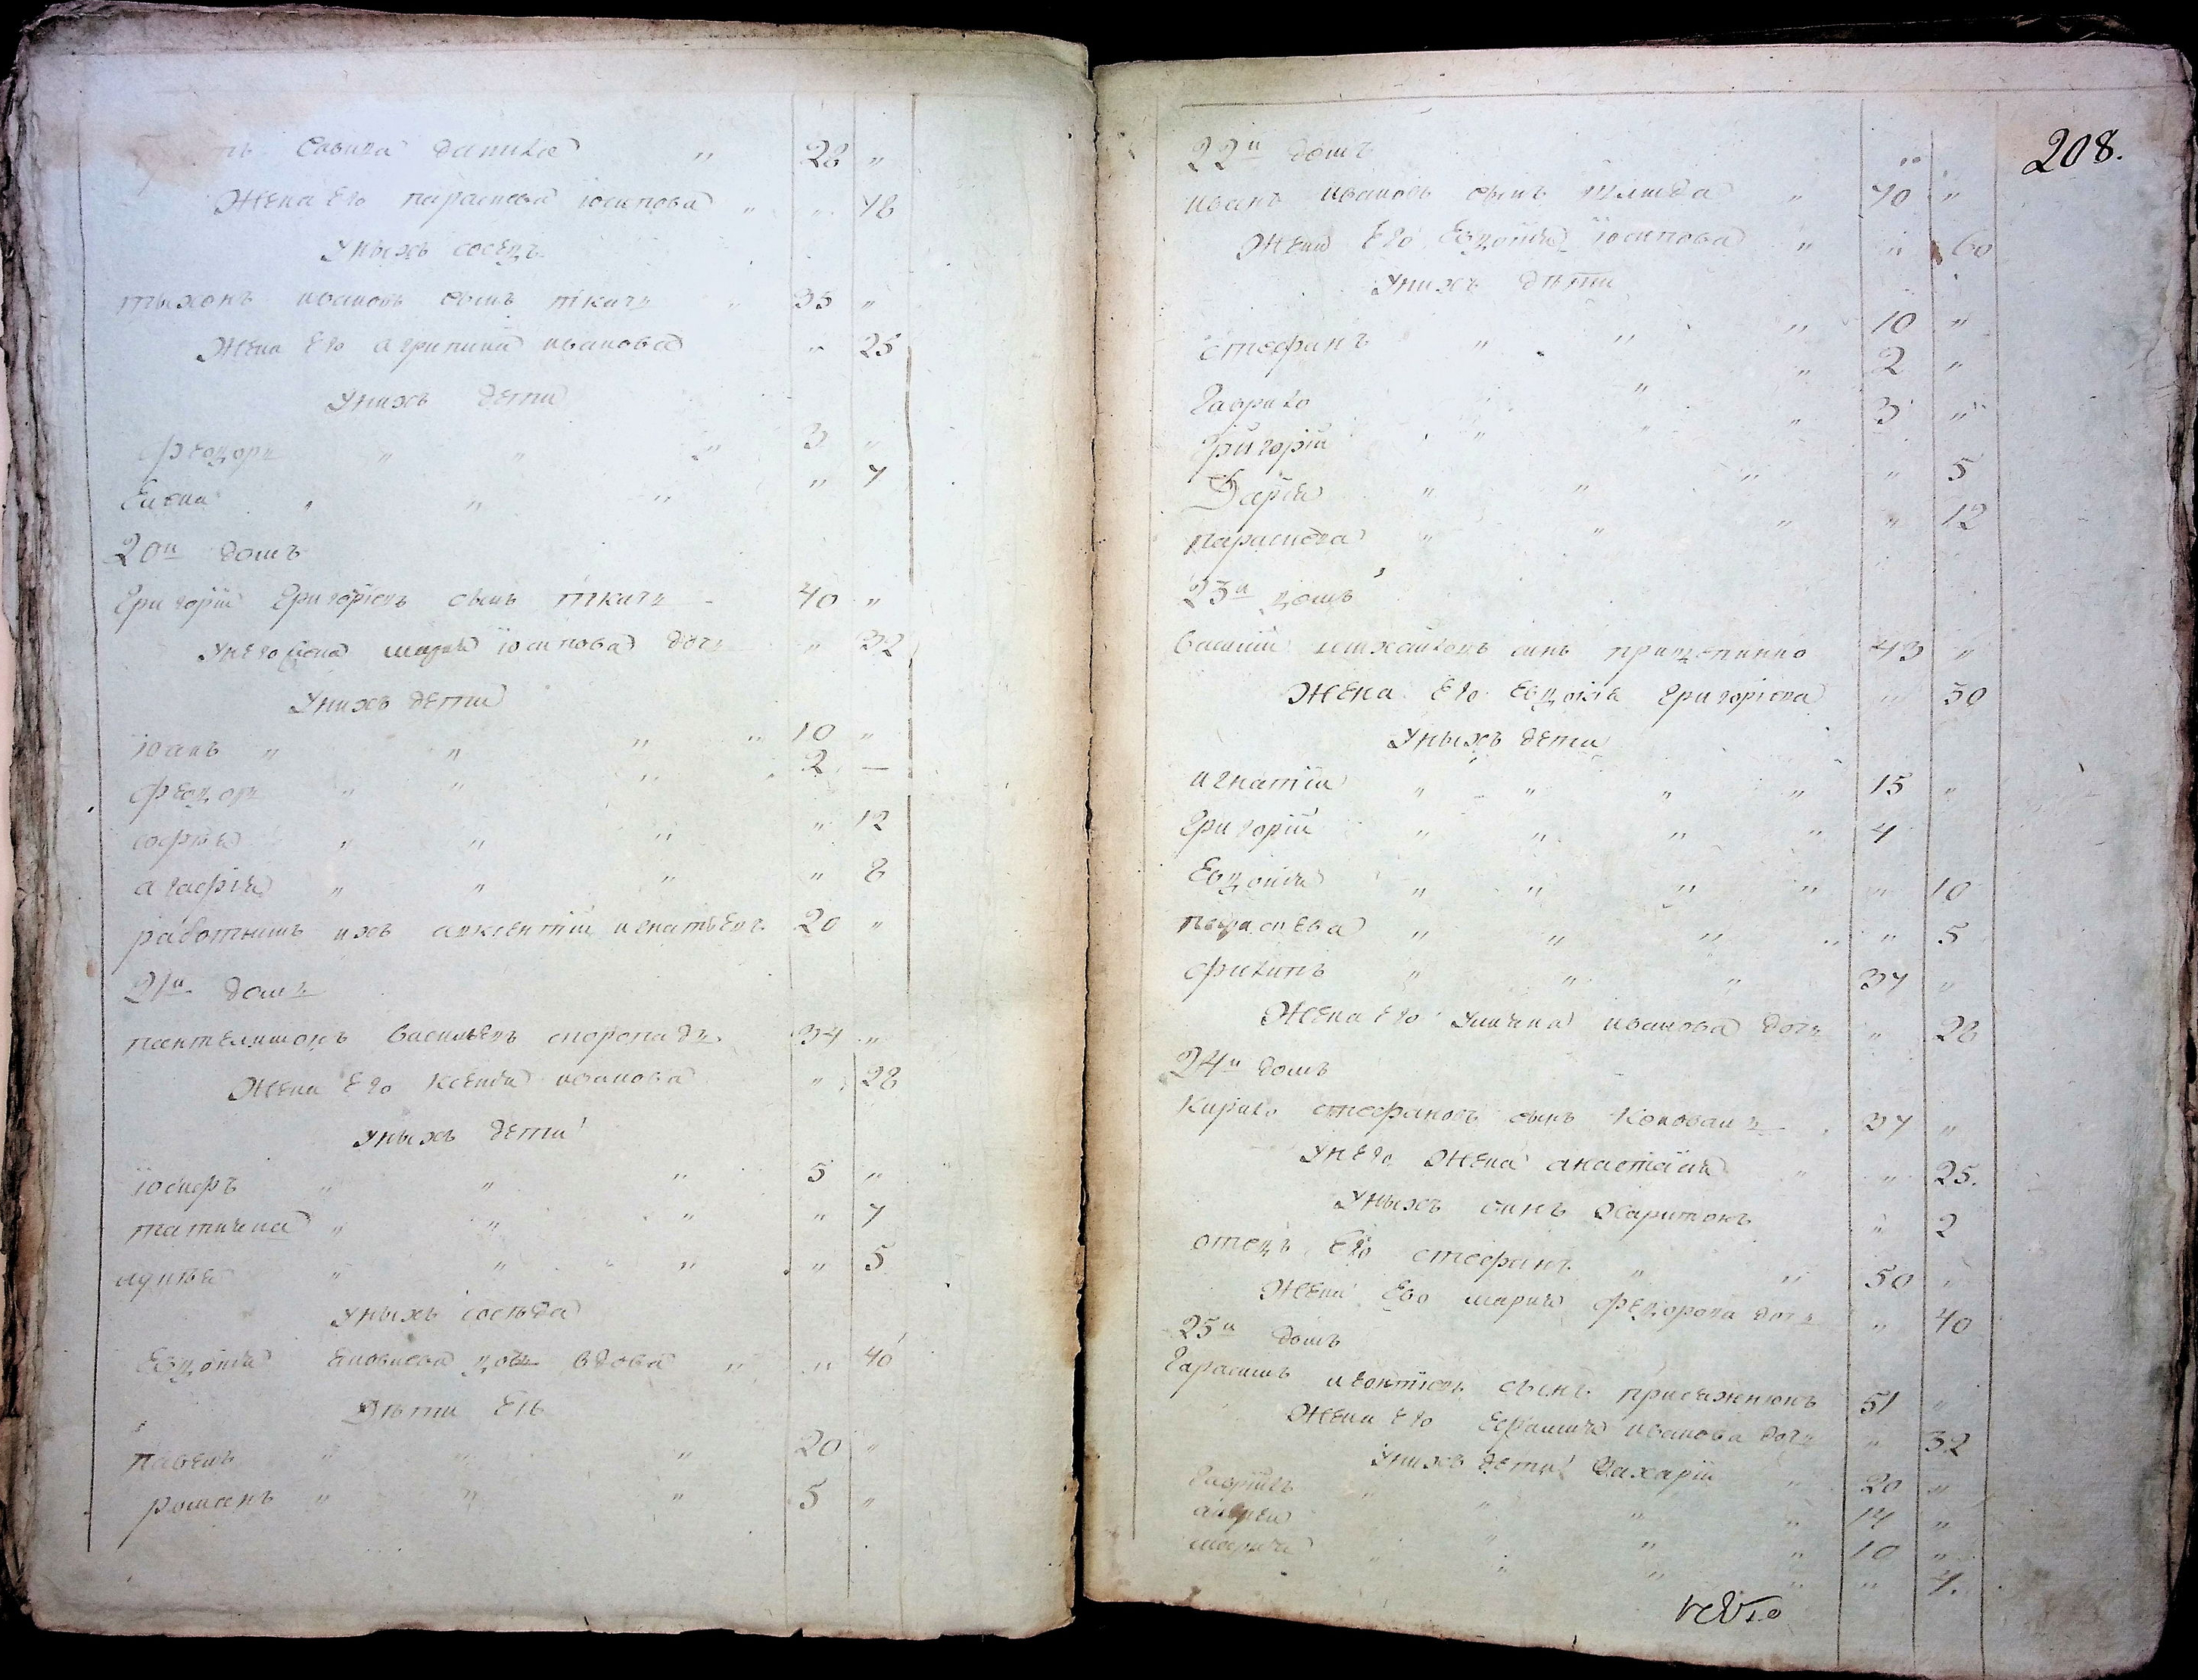 28 "
Жена его параскева іосипова " " 48
Уныхъ сосед
тыхонъ ивановъ сынъ ткачъ " 35 "
Жена его агрипина иванова " 25
Унихъ дети
федоръ " " " 3 "
Елена " " " " 7
20й домъ
Григорій Григоріевъ сынъ ткачъ 40 "
Унего жена марія іосипова дочъ " 32
Унихъ дети
іоанъ " " " " 10 "
федоръ " " " 2 —
софия " " " " 12
агафія " " " " 8
работникъ ихъ авксентій игнатьевъ 20 "
21й домъ
пантелимонъ Васильевъ скоропадъ 34 "
Жена его Ксенія иванова " 28
Уныхъ дети
іосифъ " " " 5 "
татияна " " " " 7
" " " " 5
Уныхъ соседа
Евдокия вдова " " 40
Дѣти еѣ
павелъ " " " 20 "
романъ " " " 5 "
208.
22й домъ
иванъ ивановъ сынъ " 70 "
Жена его Евдокия іосипова " " 60
Унихъ дѣти
стефанъ " " " 10 "
Гаврило " " 2 "
Григорій " " " 3 "
Дарія " " " " 5
параскева " " " " 12
23й домъ
Василій михайловъ синъ 43 "
Жена его Евдокія Григоріева " 30
Уныхъ дети
игнатій " " " " 15 "
Григорій " " " " 4
Евдокия " " " " " 10
параскева " " " " " 5
филипъ " " " 37 "
Жена его улияна иванова дочъ " 28
24й домъ
Кирило стефановъ сынъ Коновалъ 37 "
Унего жена анастасія " " 25.
Уныхъ синъ Харитонъ " 2
отецъ его стефанъ " " 50 "
Жена ево мария федорова дочъ " 40
25й домъ
Гарасимъ леонтіевъ сынъ присяжнюкъ 51 "
Жена его Ефимия иванова дочъ " 32
Унихъ дети Захарій " 20 "
Гавріилъ " " " " 14 "
андрей " " " " 10 "
мария " " " " " 7.